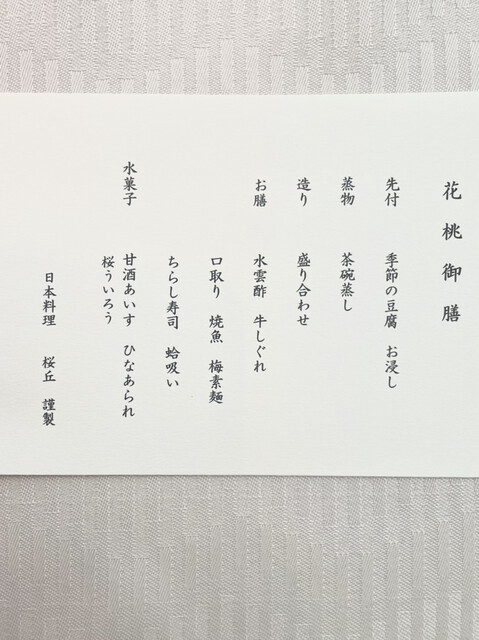 花桃御膳
先付 季節の豆腐 お浸し
蒸物 茶碗蒸し
造り 盛り合わせ
お膳 水雲酢 牛しぐれ
口取り 焼魚 梅素麺
ちらし寿司 蛤吸い
水菓子 甘酒あいす ひなあられ
桜ういろう
日本料理 桜丘 謹製